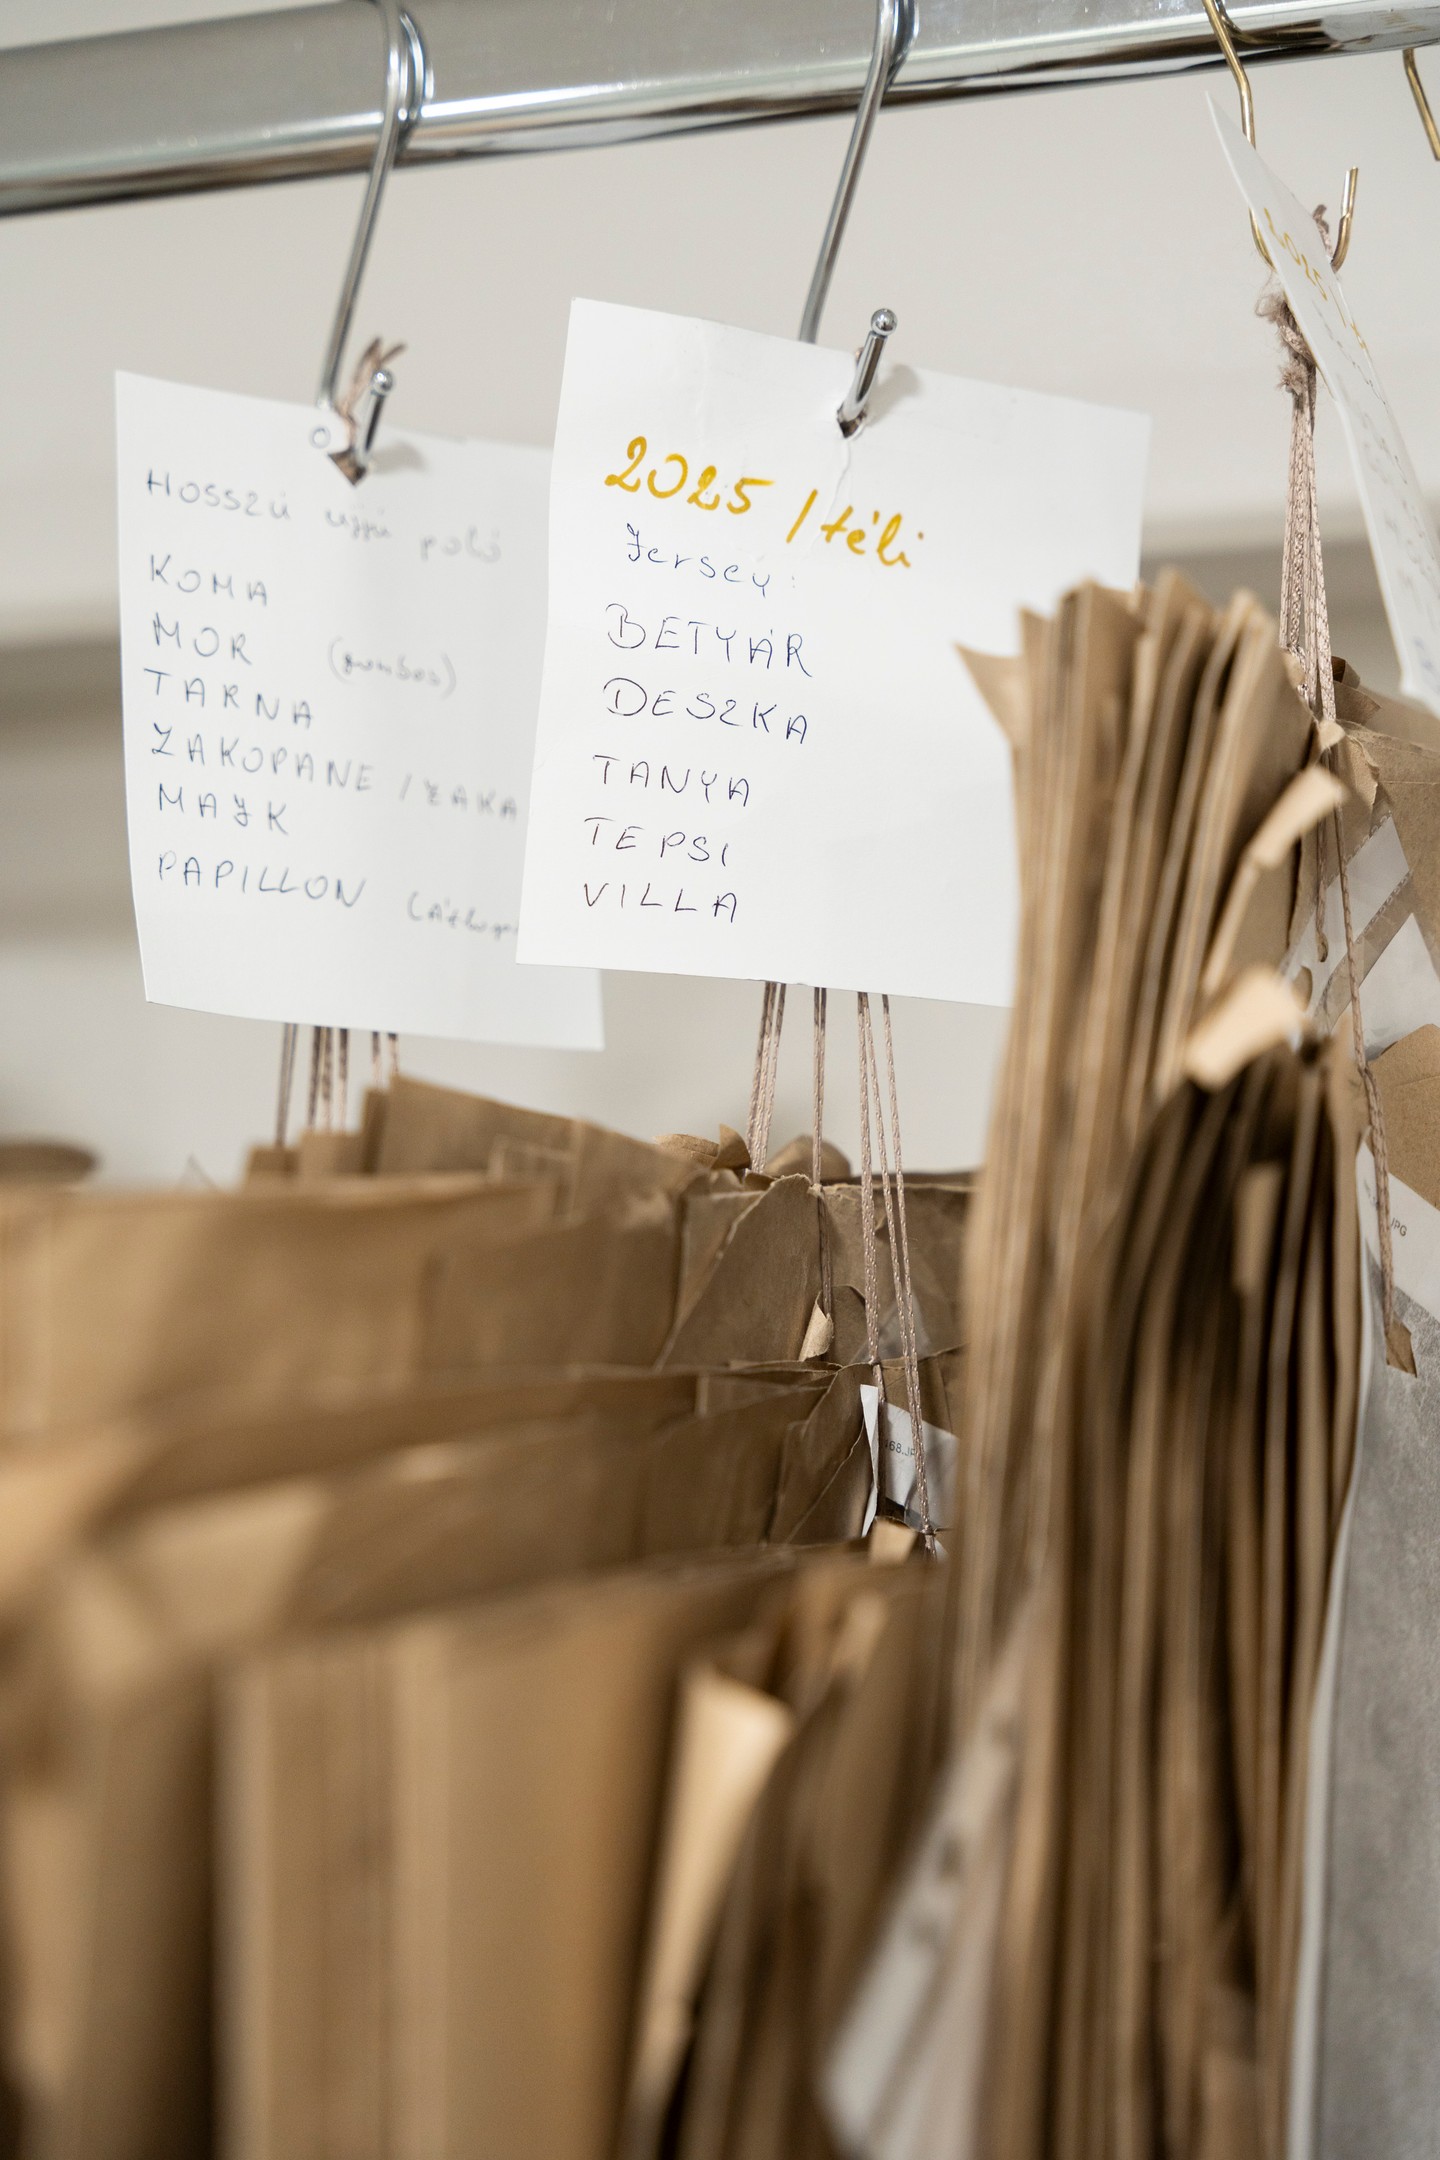 Hosszú ujjú poló
KOMA
MOR (gombos)
TARNA
ZAKOPANE / ZAKA
MAJK
PAPILLON
2025 / téli
Jersey:
BETYÁR
DESZKA
TANYA
TEPSI
VILLA
2025
68.JP
.JPG